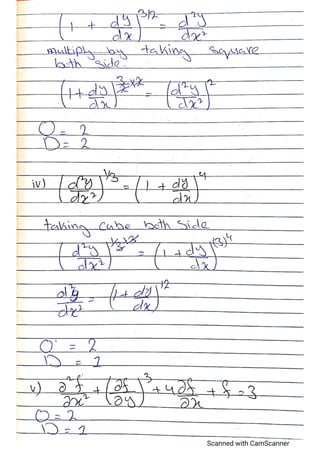 (1 + dy/dx)^3/2 = d²y/dx²
multiply by taking square
both side.
(1 + dy/dx)^3/2×2 = (d²y/dx²)²
O = 2
D = 2
iv) (d²y/dx²)^1/3 = (1 + dy/dx)^4
taking cube both side
(d²y/dx²)^1/3×3 = (1 + dy/dx)^(3)4
d²y/dx² = (1 + dy/dx)^12
O = 2
D = 1
v) ∂²f/∂x² + (∂f/∂y)³ + 4 ∂f/∂x + f = 3
O = 2
D = 1
Scanned with CamScanner